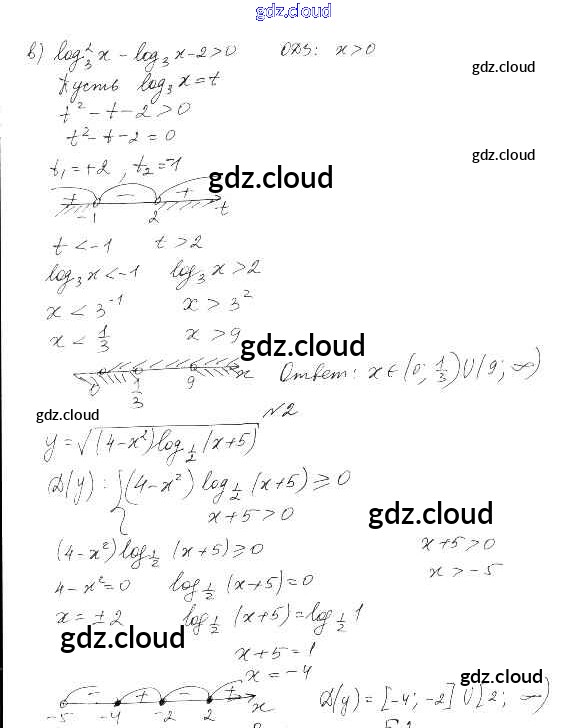 gdz.cloud
в) log₃²x - log₃x - 2 > 0 ОДЗ: x > 0
gdz.cloud
Пусть log₃x = t
t² - t - 2 > 0
t² - t - 2 = 0
gdz.cloud
t₁ = +2, t₂ = -1
gdz.cloud
+ - +
-1 2 t
t < -1 t > 2
log₃x < -1 log₃x > 2
x < 3⁻¹ x > 3²
x < 1/3 x > 9
gdz.cloud
0 1/3 9 x Ответ: x ∈ (0; 1/3) ∪ (9; ∞)
gdz.cloud
№2
y = √((4-x²)log_{1/2}(x+5))
D(y): { (4-x²) log_{1/2}(x+5) ≥ 0
x+5 > 0
gdz.cloud
(4-x²)log_{1/2}(x+5) ≥ 0 x+5 > 0
4-x² = 0 log_{1/2}(x+5) = 0 x > -5
x = ± 2 log_{1/2}(x+5) = log_{1/2}1
gdz.cloud
x+5 = 1
x = -4
gdz.cloud
- + - +
-5 -4 -2 2 x D(y) = [-4; -2] ∪ [2; ∞)